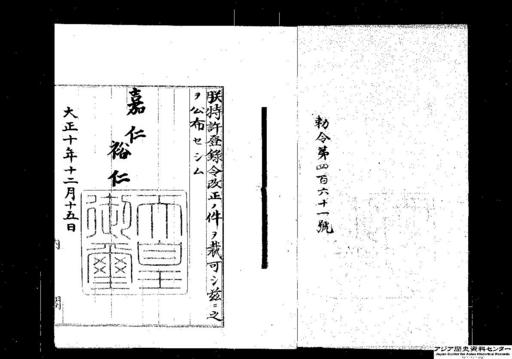 勅令第四百六十一號
朕特許登録令改正ノ件ヲ裁可シ茲ニ之
ヲ公布セシム
嘉仁
裕仁
天皇
御璽
大正十年十二月十五日
内
アジア歴史資料センター
Japan Center for Asian Historical Records